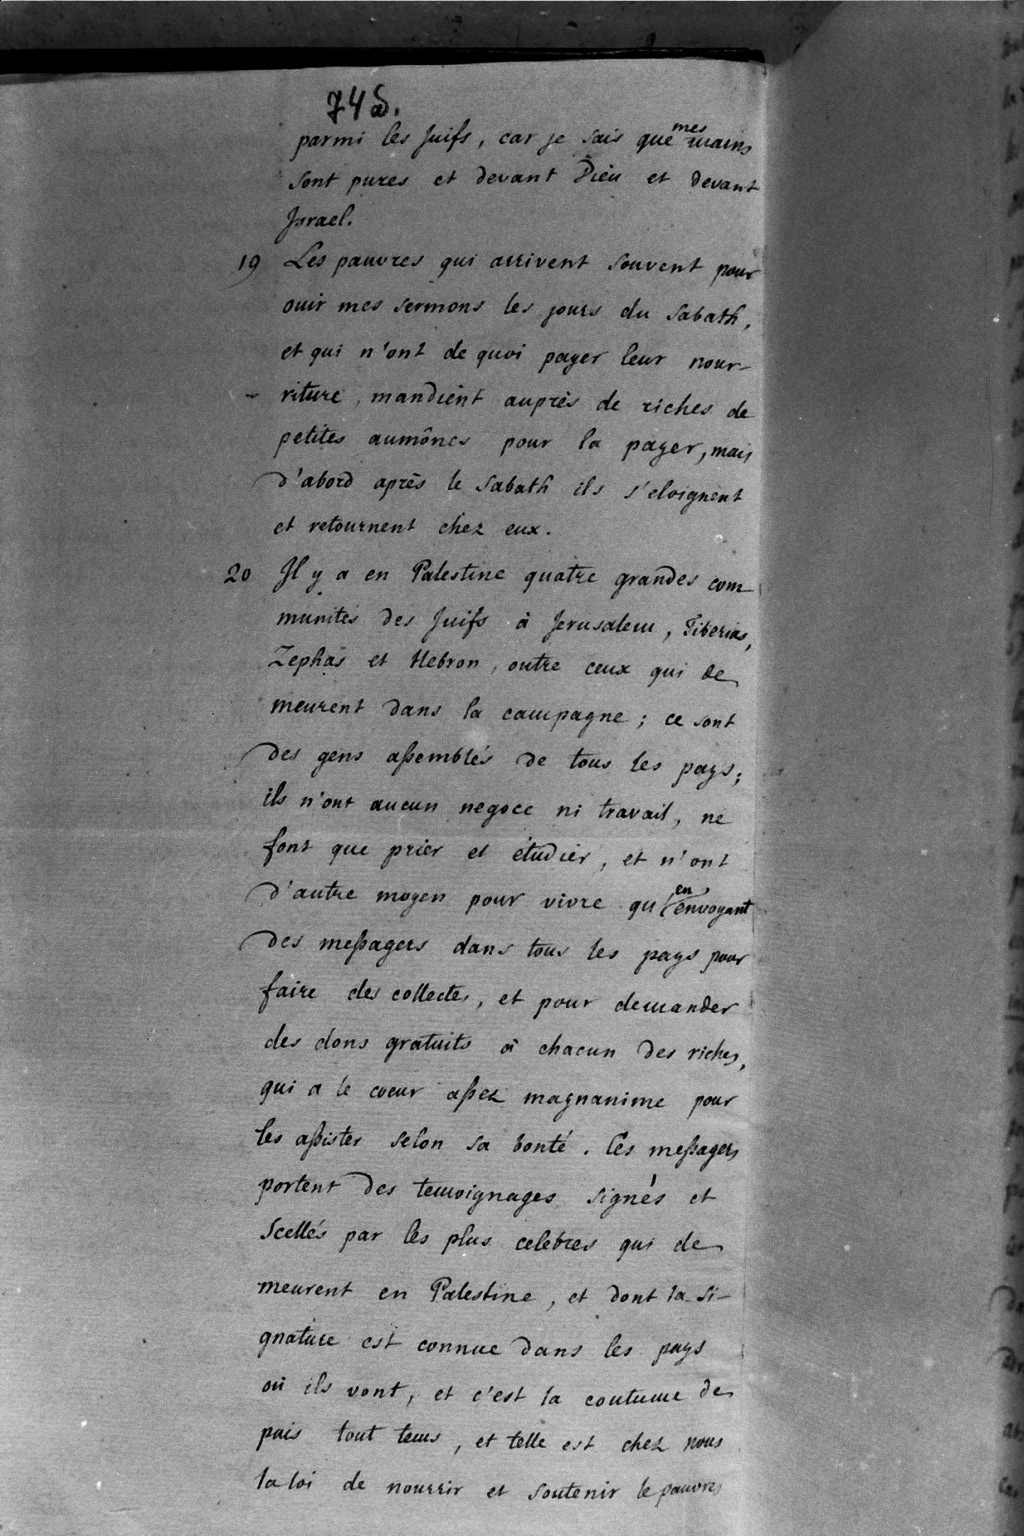 74d.
parmi les Juifs, car je sais que mes mains
sont pures et devant Dieu et devant
Israel.
19 Les pauvres qui arrivent souvent pour
ouir mes sermons les jours du Sabath,
et qui n'ont de quoi payer leur nour-
riture, mandient auprès de riches de
petites aumônes pour la payer, mais
d'abord après le Sabath ils s'eloignent
et retournent chez eux.
20 Il y a en Palestine quatre grandes com-
munités des Juifs à Jerusalem, Tiberias,
Zephas et Hebron, outre ceux qui de
meurent dans la campagne; ce sont
des gens aßemblés de tous les pays;
ils n'ont aucun negoce ni travail, ne
font que prier et étudier, et n'ont
d'autre moyen pour vivre qu'en envoyant
des meßagers dans tous les pays pour
faire des collectes, et pour demander
des dons gratuits à chacun des riches,
qui a le coeur aßez magnanime pour
les aßister selon sa bonté. Ces meßagers
portent des temoignages signés et
Scellés par les plus celebres qui de
meurent en Palestine, et dont la si-
gnature est connue dans les pays
où ils vont, et c'est la coutume de
puis tout tems, et telle est chez nous
la loi de nourrir et soutenir le pauvres